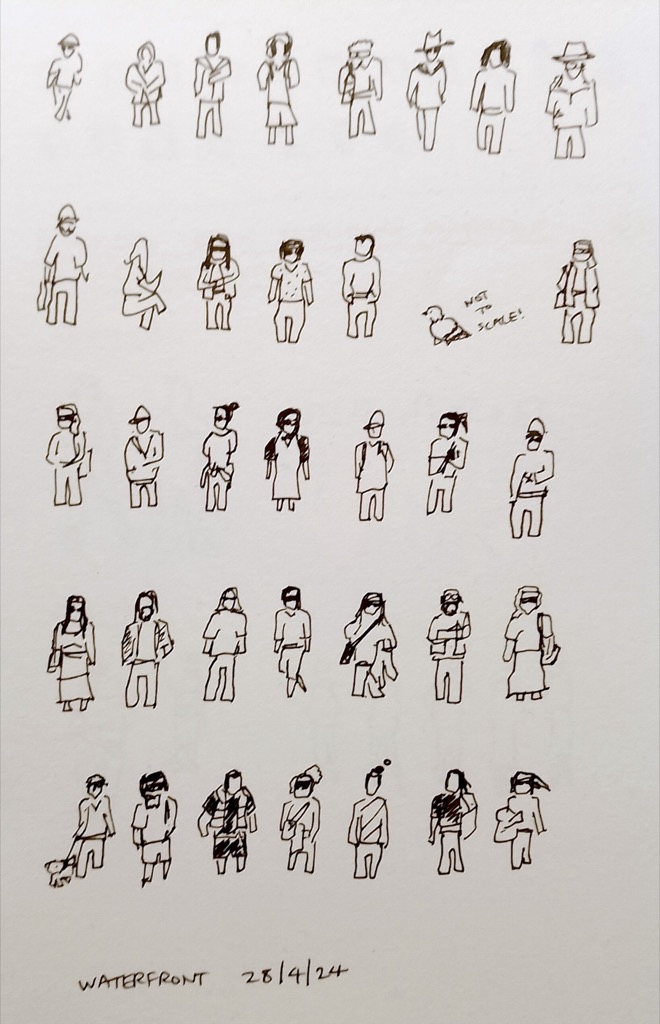 NOT
TO
SCALE!
WATERFRONT 28/4/24